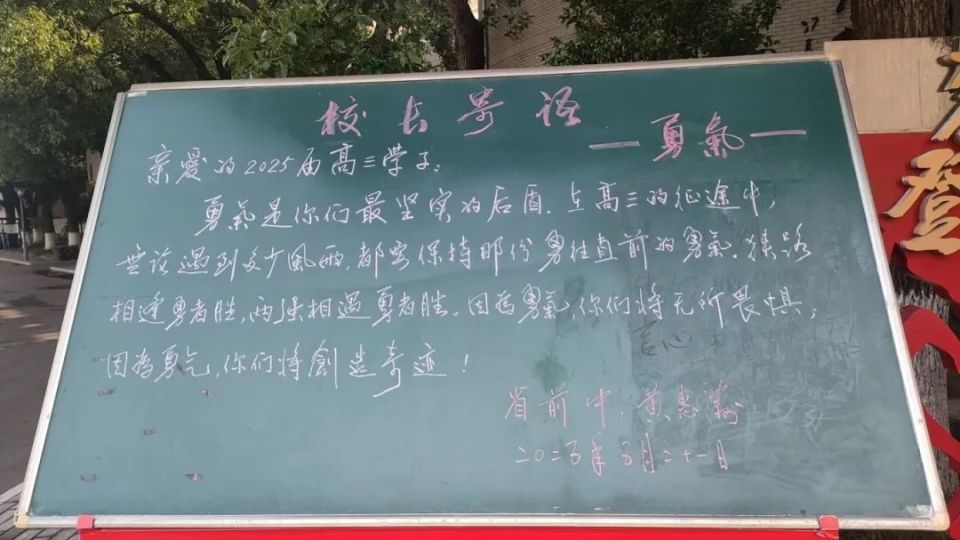 校长寄语
—勇氣—
亲爱的2025届高三学子：
勇氣是你们最坚实的后盾．在高三的征途中，
无论遇到多少風雨，都要保持那份勇往直前的勇氣．狭路
相逢勇者胜，两强相遇勇者胜．因為勇氣，你们将无所畏惧；
因為勇气，你们将創造奇迹！
省前中：黄惠涛
二〇二五年五月二十一日
登